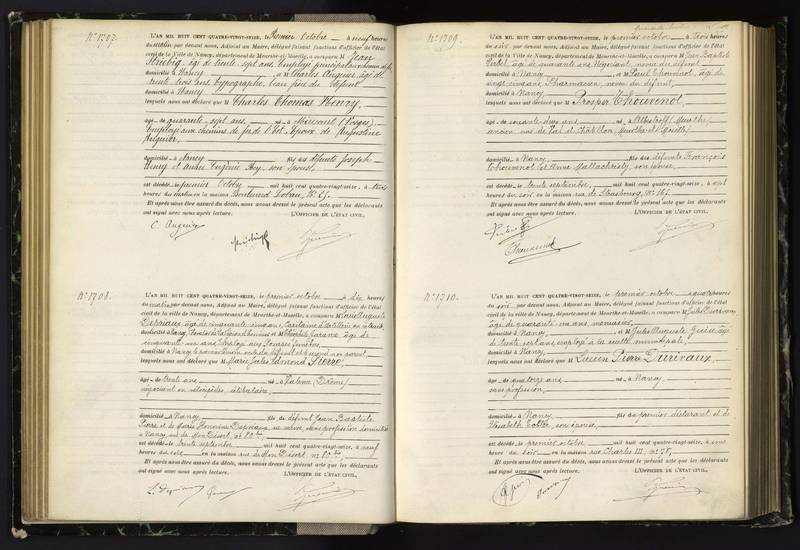 N° 1707.
L'AN MIL HUIT CENT QUATRE-VINGT-SEIZE, le premier Octobre à neuf heures
du matin par devant nous, Adjoint au Maire, délégué faisant fonctions d'officier de l'état
civil de la Ville de Nancy, département de Meurthe-et-Moselle, a comparu M Jean
âgé de trente sept ans, Employé principal
domicilié à Nancy et M Charles Auguste, âgé de
trente trois ans, typographe, beau frère du défunt
domicilié à Nancy
lesquels nous ont déclaré que M Charles Thomas Henry,
âgé de quarante sept ans né à Mirecourt (Vosges)
Employé aux chemins de fer de l'Est, Epoux de Augustine
domicilié à Nancy fils des défunts Joseph
Henry et son épouse
est décédé le premier Octobre mil huit cent quatre-vingt-seize, à trois
heures du matin en la maison Boulevard Lobau, N° 25.
Et après nous être assuré du décès, nous avons dressé le présent acte que les déclarants
ont signé avec nous après lecture. L'OFFICIER DE L'ÉTAT CIVIL,
N° 1708.
L'AN MIL HUIT CENT QUATRE-VINGT-SEIZE, le premier octobre à dix heures
du matin, par devant nous, Adjoint au Maire, délégué faisant fonctions d'officier de l'état
civil de la Ville de Nancy, département de Meurthe-et-Moselle, a comparu M Louis Auguste
Depriaux, âgé de cinquante cinq ans, Capitaine d'artillerie en retraite
domicilié à Nancy, et M Théophile
cinquante un ans Employé aux Pompes funèbres
domicilié à Nancy
lesquels nous ont déclaré que M Marie Jules Edmond Pierre,
âgé de trente ans né à Valence (Drôme)
négociant en vélocipèdes célibataire
domicilié à Nancy fils de défunt Jean Baptiste
Pierre et de Marie sa veuve, sans profession domiciliée
à Nancy rue de Mon Désert, n° 80 bis
est décédé le trente septembre mil huit cent quatre-vingt-seize, à neuf
heures du soir en la maison rue de Mon Désert, n° 80 bis
Et après nous être assuré du décès, nous avons dressé le présent acte que les déclarants
ont signé avec nous après lecture. L'OFFICIER DE L'ÉTAT CIVIL,
N° 1709.
L'AN MIL HUIT CENT QUATRE-VINGT-SEIZE, le premier octobre à trois heures
du soir, par devant nous, Adjoint au Maire, délégué faisant fonctions d'officier de l'état
civil de la Ville de Nancy, département de Meurthe-et-Moselle, a comparu M Jean Baptiste
âgé de quarante ans Négociant, neveu du défunt
domicilié à Nancy et M Paul Thouvenot, âgé de
vingt cinq ans Pharmacien, neveu du défunt,
domicilié à Nancy,
lesquels nous ont déclaré que M Prosper Thouvenot,
âgé de soixante deux ans né à Albestroff (Meurthe)
ancien
domicilié à Nancy, fils des défunts François
Thouvenot et Anne son épouse
est décédé le trente septembre, mil huit cent quatre-vingt-seize, à sept
heures du soir en la maison rue de Strasbourg, N° 167.
Et après nous être assuré du décès, nous avons dressé le présent acte que les déclarants
ont signé avec nous après lecture. L'OFFICIER DE L'ÉTAT CIVIL,
N° 1710.
L'AN MIL HUIT CENT QUATRE-VINGT-SEIZE, le premier octobre à quatre heures
du soir, par devant nous, Adjoint au Maire, délégué faisant fonctions d'officier de l'état
civil de la Ville de Nancy, département de Meurthe-et-Moselle, a comparu M Jules
âgé de quarante un ans menuisier,
domicilié à Nancy et M Jules Auguste âgé
de trente sept ans, employé à la recette municipale,
domicilié à Nancy,
lesquels nous ont déclaré que M Lucien Pierre
âgé de quatorze ans né à Nancy
sans profession,
domicilié à Nancy fils du premier déclarant et de
Elisabeth son épouse
est décédé le premier octobre mil huit cent quatre-vingt-seize, à une
heure du soir en la maison rue Charles III, n° 78,
Et après nous être assuré du décès, nous avons dressé le présent acte que les déclarants
ont signé avec nous après lecture. L'OFFICIER DE L'ÉTAT CIVIL,